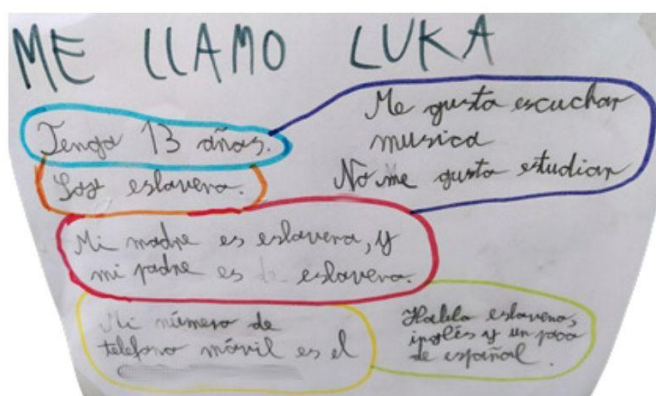 ME LLAMO LUKA
Tengo 13 años.
Soy esloveno.
Me gusta escuchar
musica
No me gusta estudiar
Mi madre es eslovena, y
mi padre es esloveno.
Mi número de
teléfono móvil es el
Hablo esloveno,
inglés y un poco
de español.